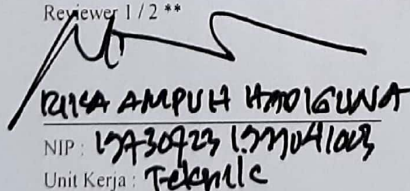 Reviewer 1 / 2 **
RIKA AMPUH HADIGUNA
NIP : 19730723 199904 1003
Unit Kerja : Teknik